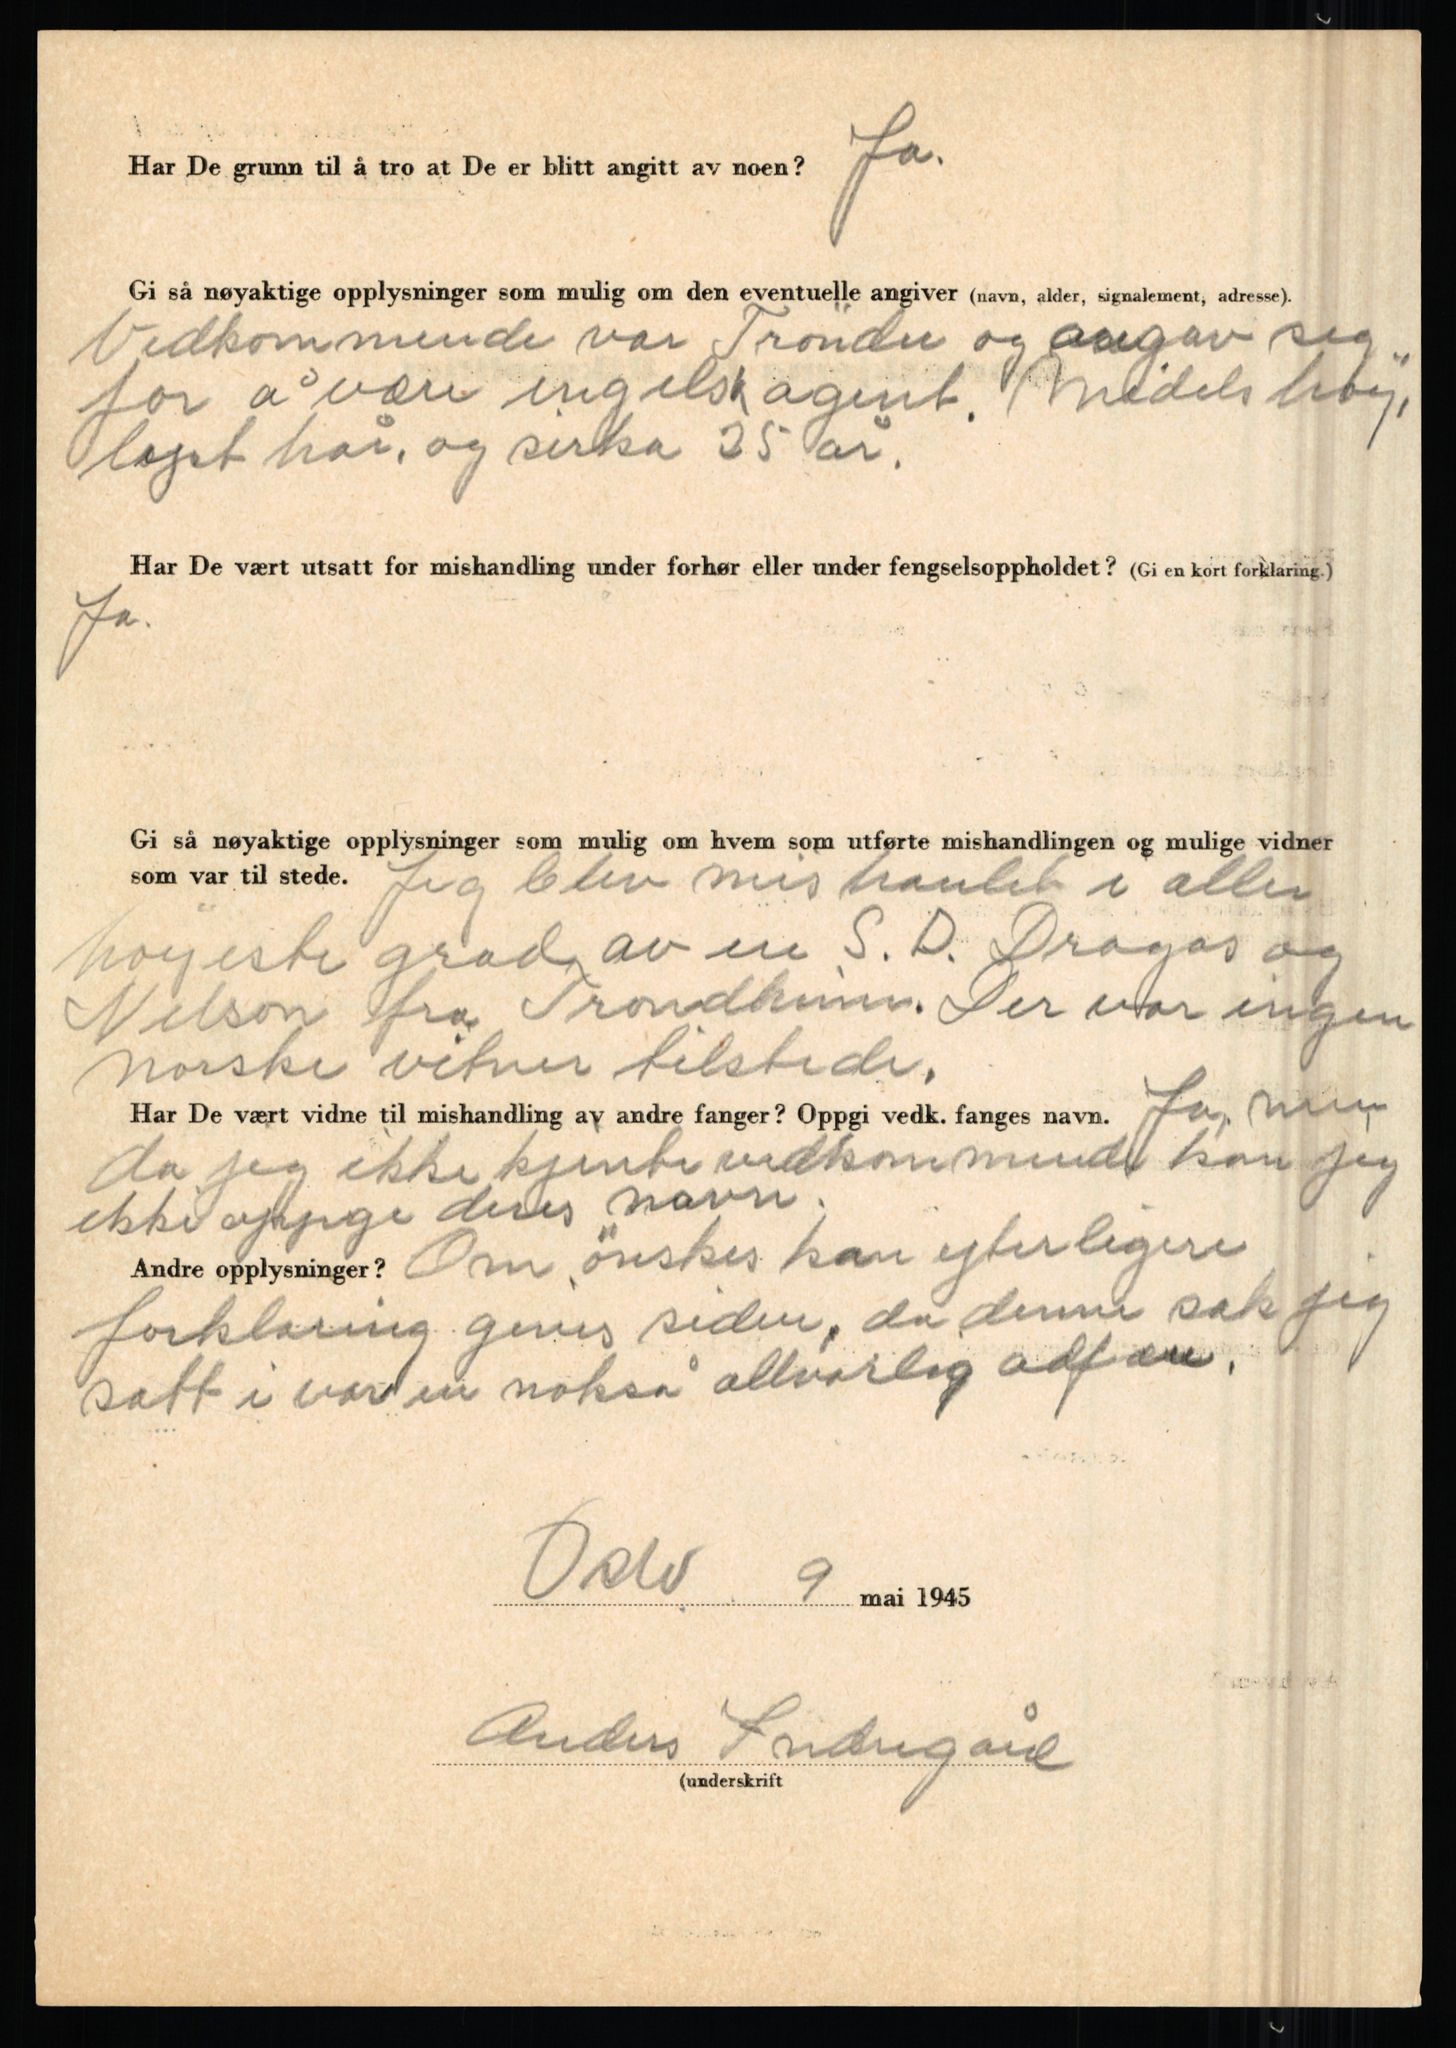 Har De grunn til å tro at De er blitt angitt av noen? Ja.
Gi så nøyaktige opplysninger som mulig om den eventuelle angiver (navn, alder, signalement, adresse).
Vedkommende var Trönder og angav seg
for å være engelsk agent. Midels høy,
lyst hår, og sirka 25 år.
Har De vært utsatt for mishandling under forhør eller under fengselsoppholdet? (Gi en kort forklaring.)
Ja.
Gi så nøyaktige opplysninger som mulig om hvem som utførte mishandlingen og mulige vidner
som var til stede. Jeg blev mishanlet i aller
höyeste grad av en S. D. Dragas og
Nelson fra Trondheim. Der var ingen
norske vitner tilstede.
Har De vært vidne til mishandling av andre fanger? Oppgi vedk. fanges navn. Ja, men
da jeg ikke kjente vedkommende kan jeg
ikke oppge deres navn.
Andre opplysninger? Om önskes kan yterligere
forklaring geves siden, da denne sak jeg
satt i var en nokså allvorlig
Oslo 9 mai 1945
Anders Indregård
(underskrift